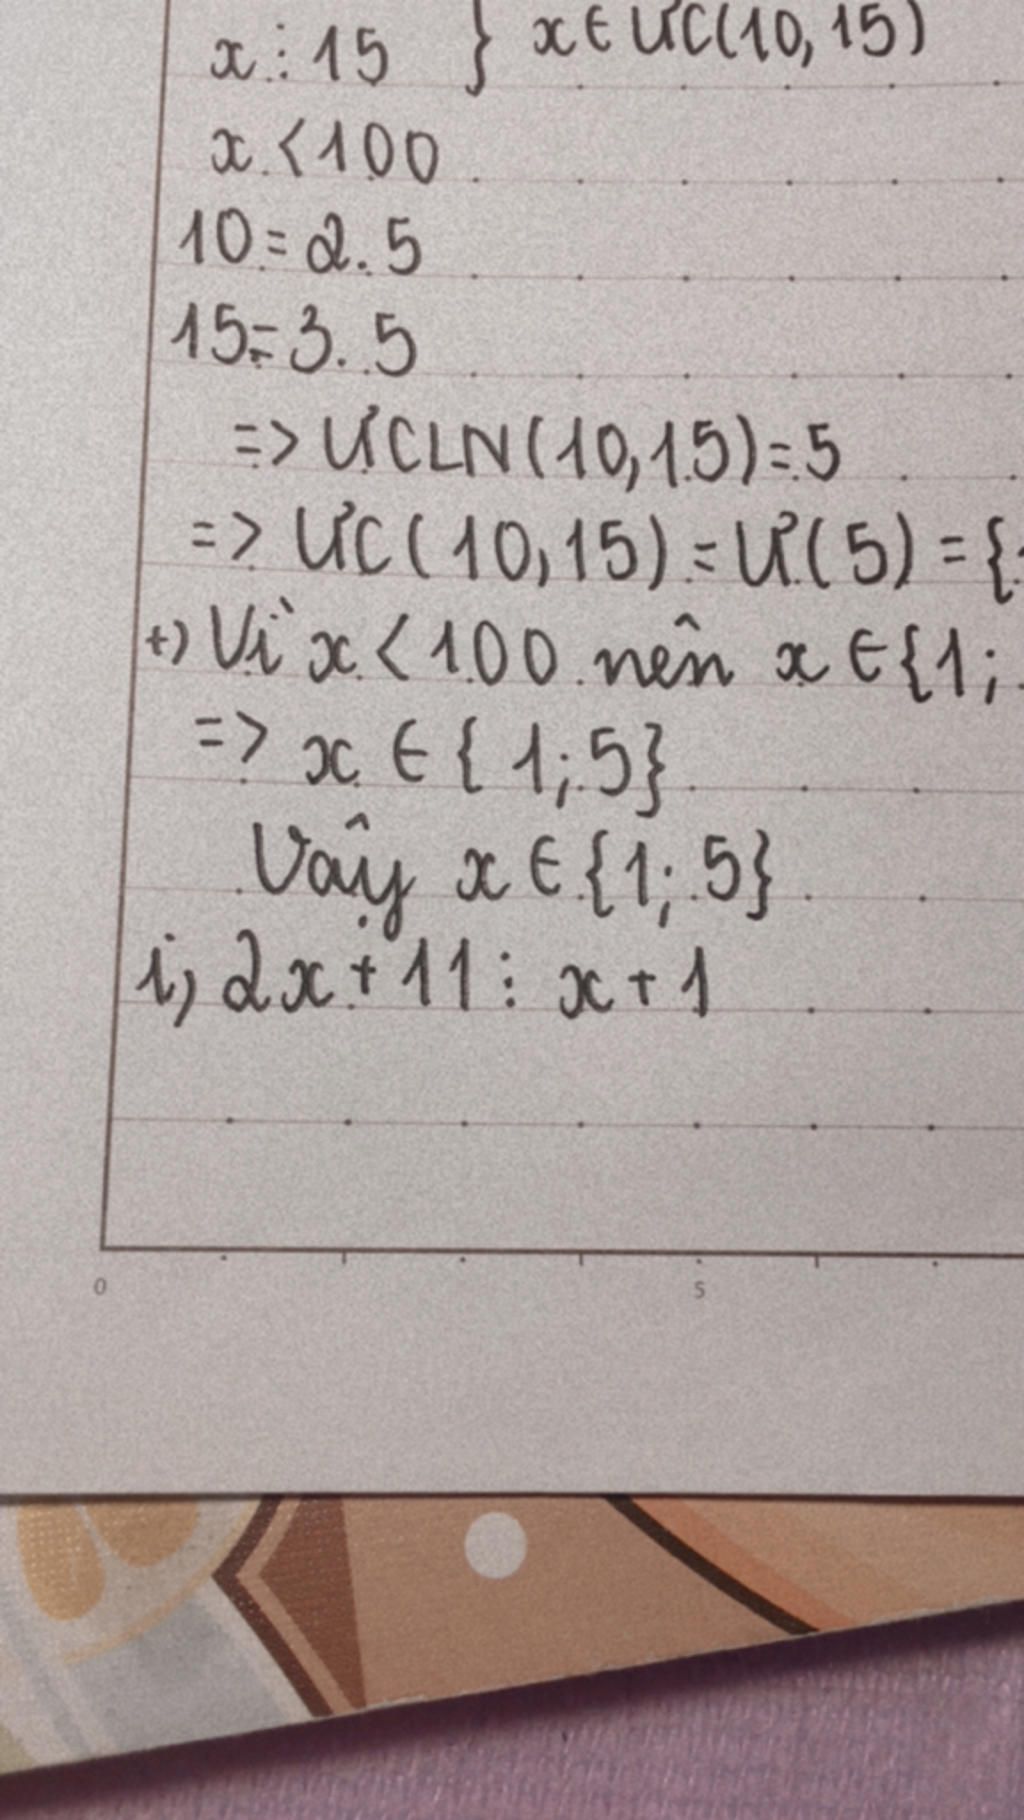 x ⋮ 15 } x ∈ ƯC(10, 15)
x < 100
10 = 2.5
15 = 3.5
=> ƯCLN(10,15) = 5
=> ƯC(10,15) = Ư(5) = {
+) Vì x < 100 nên x ∈ {1;
=> x ∈ {1; 5}
Vậy x ∈ {1; 5}
i, 2x + 11 ⋮ x + 1
0 5